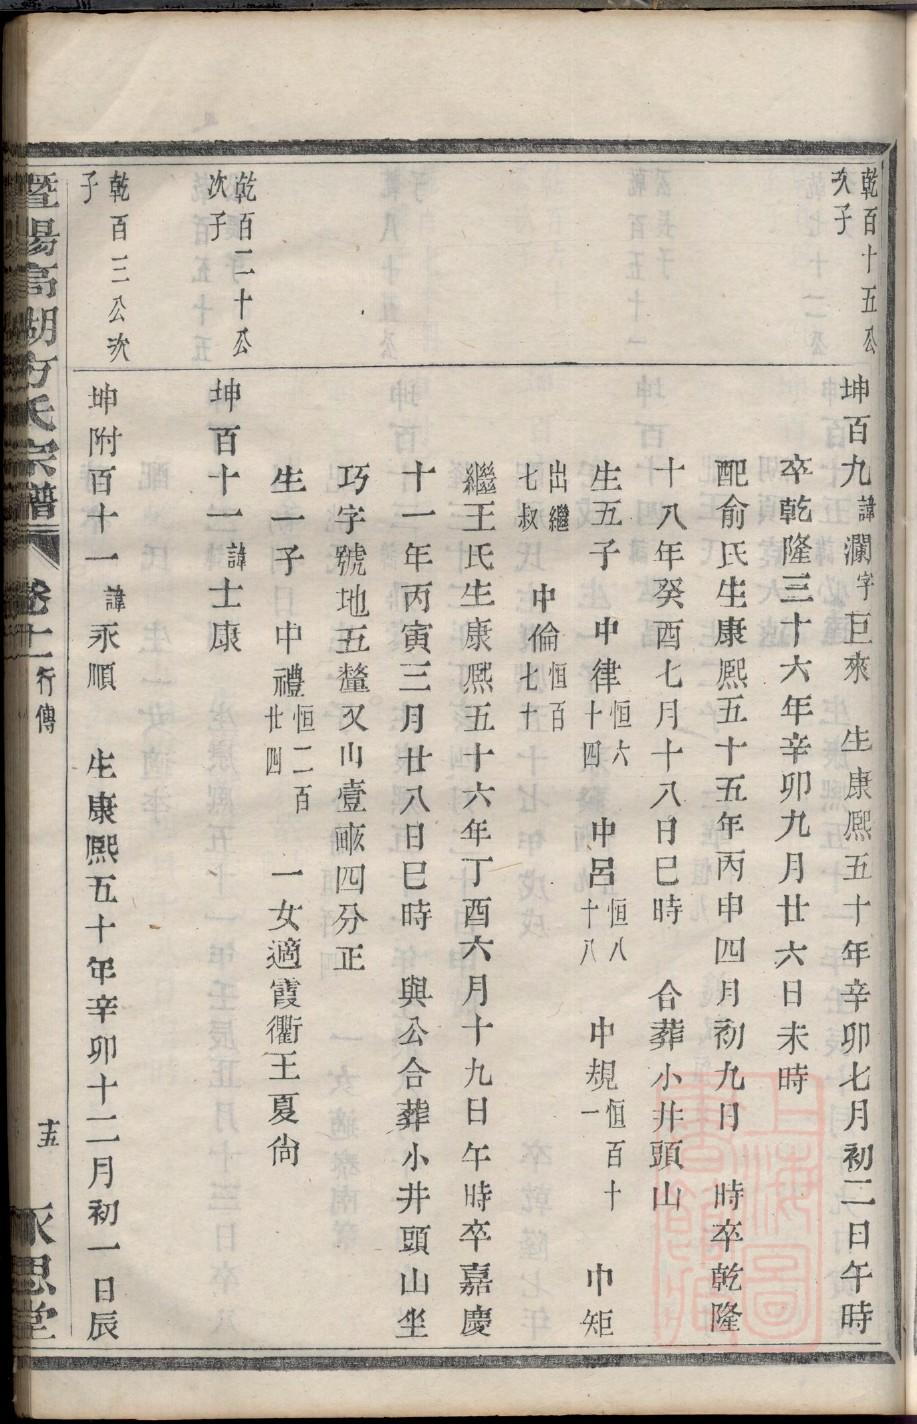 乾百十五公
次子
坤百九諱瀾字巨來　生康熙五十年辛卯七月初二日午時
卒乾隆三十六年辛卯九月廿六日未時
配俞氏生康熙五十五年丙申四月初九日　時卒乾隆
十八年癸酉七月十八日巳時　合葬小井頭山
生五子　中律恒六十四　中呂恒八十八　中規恒百十一　中矩
出繼七叔　中倫恒百七十
繼王氏生康熙五十六年丁酉六月十九日午時卒嘉慶
十一年丙寅三月廿八日巳時　與公合葬小井頭山坐
巧字號地五釐又山壹畝四分正
生一子中禮恒二百廿四　一女適霞衢王夏尙
乾百二十公
次子
坤百十一諱士康
乾百三公次
子
坤附百十一諱永順　生康熙五十年辛卯十二月初一日辰
暨陽高湖方氏宗譜
卷十一　行傳
十五
永思堂
上海圖書館藏